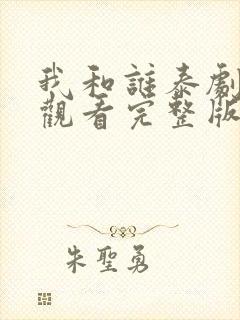 我和誰泰劇
觀看完整版
朱聖勇